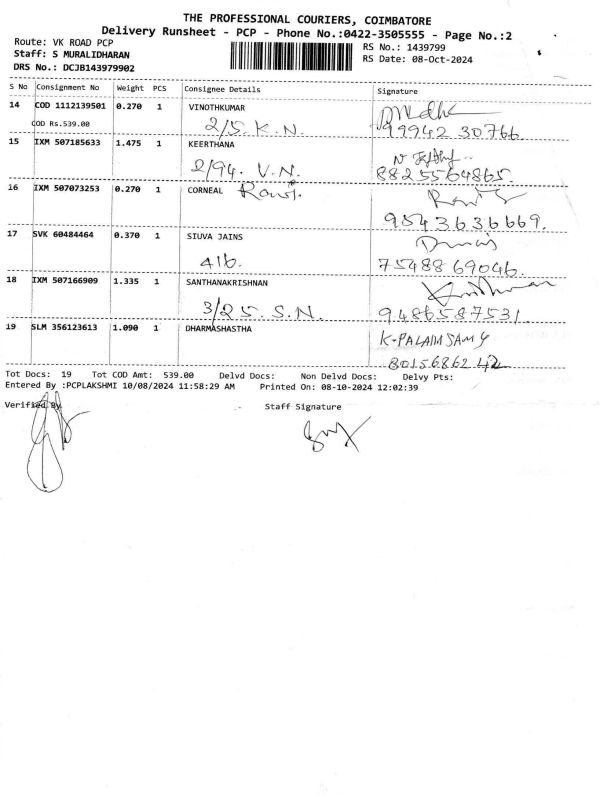 THE PROFESSIONAL COURIERS, COIMBATORE
Delivery Runsheet - PCP - Phone No.:0422-3505555 - Page No.:2
Route: VK ROAD PCP RS No.: 1439799
Staff: S MURALIDHARAN RS Date: 08-Oct-2024
DRS No.: DCJB143979902
S No Consignment No Weight PCS Consignee Details Signature
14 COD 1112139501 0.270 1 VINOTHKUMAR
COD Rs.539.00 2/5. K.N. 99942 30766
15 IXM 507185633 1.475 1 KEERTHANA
2/94. V.N. 8825564865.
16 IXM 507073253 0.270 1 CORNEAL
9543636669.
17 SVK 60484464 0.370 1 SIUVA JAINS
416. 75488 69046.
18 IXM 507166909 1.335 1 SANTHANAKRISHNAN
3/25. S.N. 9486587531.
19 SLM 356123613 1.090 1 DHARMASHASTHA K-PALANISAMY
80156862 42
Tot Docs: 19 Tot COD Amt: 539.00 Delvd Docs: Non Delvd Docs: Delvy Pts:
Entered By :PCPLAKSHMI 10/08/2024 11:58:29 AM Printed On: 08-10-2024 12:02:39
Verified By Staff Signature